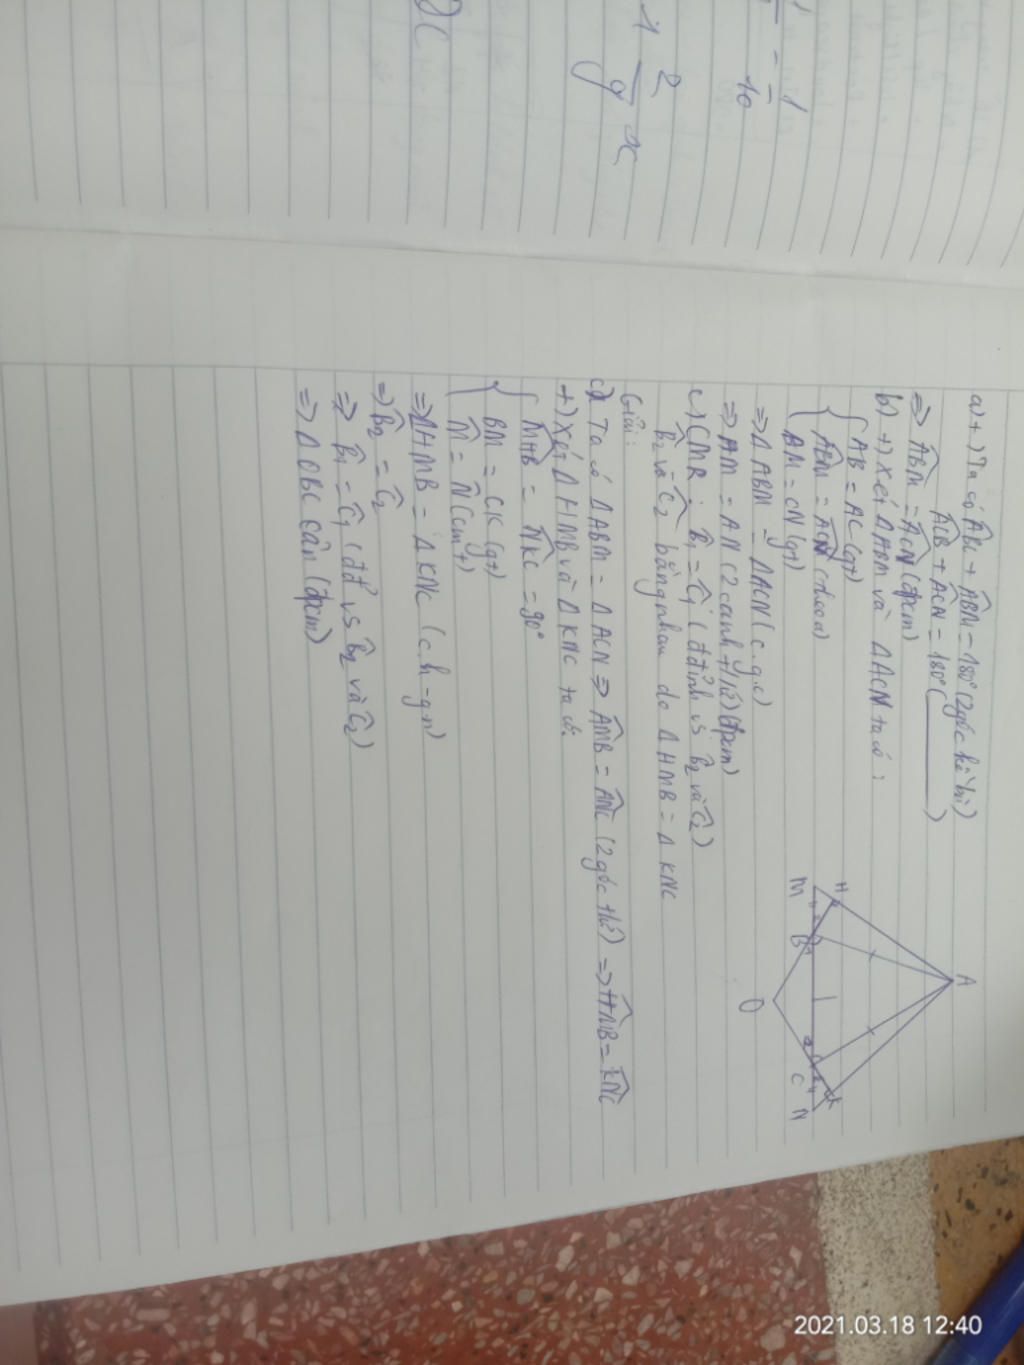 1/10 = 1/
1 2/9 x
x
a) +) Ta có ABC + ABM = 180° (2 góc kề bù)
ACB + ACN = 180° (______)
=> ABM = ACN (đpcm)
b) +) Xét ΔABM và ΔACN ta có :
AB = AC (gt)
ABM = ACN (câu a)
BM = CN (gt)
=> ΔABM = ΔACN (c.g.c)
=> AM = AN (2 cạnh t/ứ) (đpcm)
c) CMR : B1 = C1 (đđỉnh vs B2 và C2)
B2 và C2 bằng nhau do ΔHMB = ΔKNC
Giải :
c) Ta có ΔABM = ΔACN => AMB = ANC (2 góc t/ứ) => HMB = KNC
+) Xét ΔHMB và ΔKNC ta có:
MHB = NKC = 90°
BM = CK (gt)
M = N (cmt)
=> ΔHMB = ΔKNC (c.h - g.n)
=> B2 = C2
=> B1 = C1 (đđ vs B2 và C2)
=> ΔOBC cân (đpcm)
A
H
M
B
C
N
K
O
2021.03.18 12:40